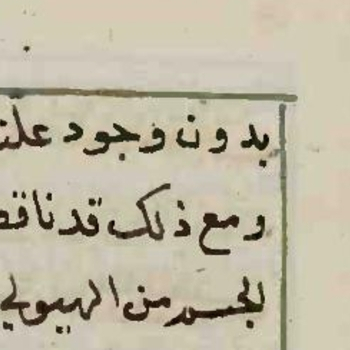 بدون وجود علته
ومع ذلك قد ناقض
الجسم من الهيولي